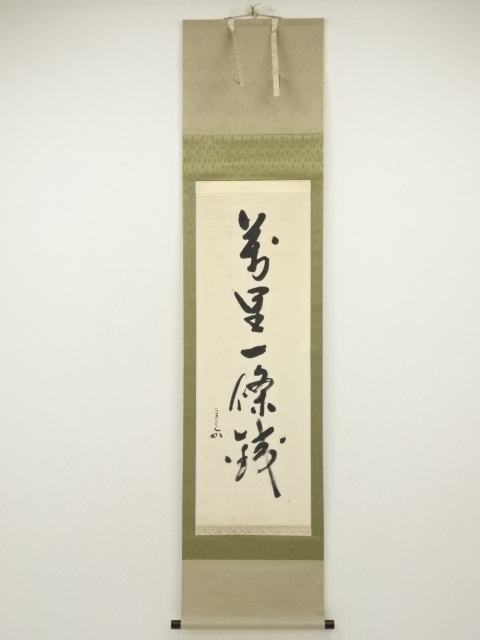 萬里一條鐵